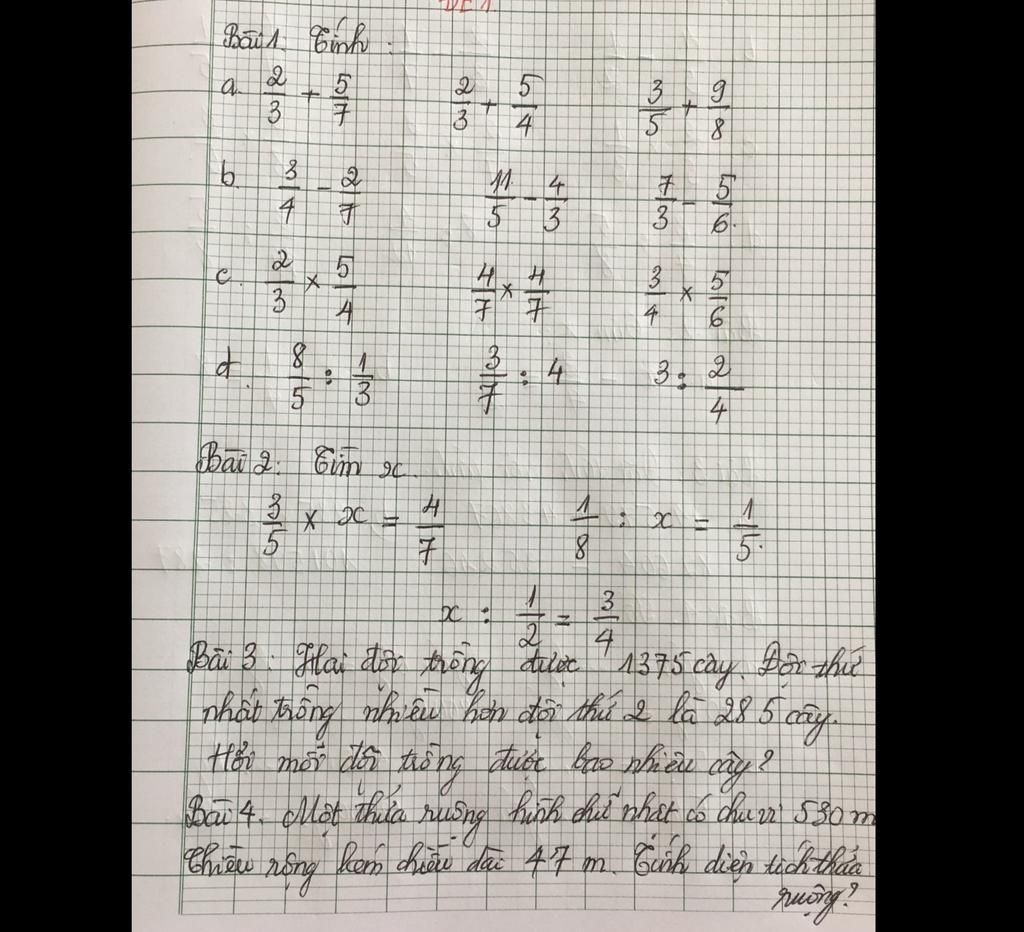 ĐỀ 1
Bài 1. Tính :
a. 2/3 + 5/7 2/3 + 5/4 3/5 + 9/8
b. 3/4 - 2/7 11/5 - 4/3 7/3 - 5/6.
c. 2/3 × 5/4 4/7 × 4/7 3/4 × 5/6
d. 8/5 : 1/3 3/7 : 4 3 : 2/4
Bài 2: Tìm x.
3/5 × x = 4/7 1/8 : x = 1/5.
x : 1/2 = 3/4
Bài 3 : Hai đội trồng được 1375 cây. Đội thứ
nhất trồng nhiều hơn đội thứ 2 là 285 cây.
Hỏi mỗi đội trồng được bao nhiêu cây?
Bài 4. Một thửa ruộng hình chữ nhật có chu vi 530 m
Chiều rộng kém chiều dài 47 m. Tính diện tích thửa
ruộng?